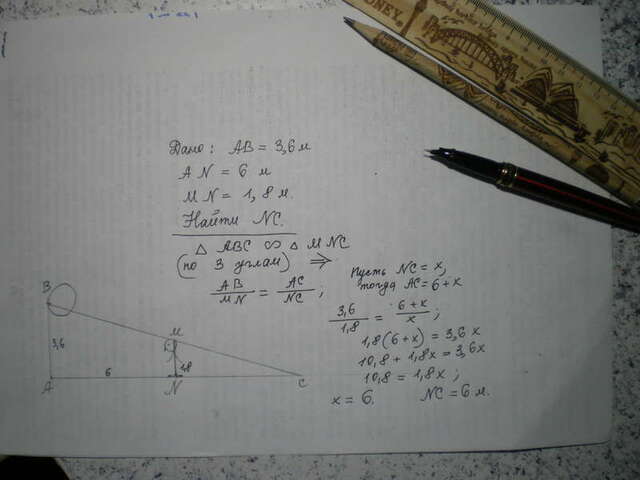 Дано: AB = 3,6 м
AN = 6 м
MN = 1,8 м.
Найти NC.
△ ABC ∞ △ MNC
(по 3 углам) ⇒
AB/MN = AC/NC;
Пусть NC = x,
тогда AC = 6 + x
3,6/1,8 = 6+x/x;
1,8(6+x) = 3,6x
10,8 + 1,8x = 3,6x
10,8 = 1,8x;
x = 6. NC = 6 м.
B
3,6
A
6
M
1,8
N
C